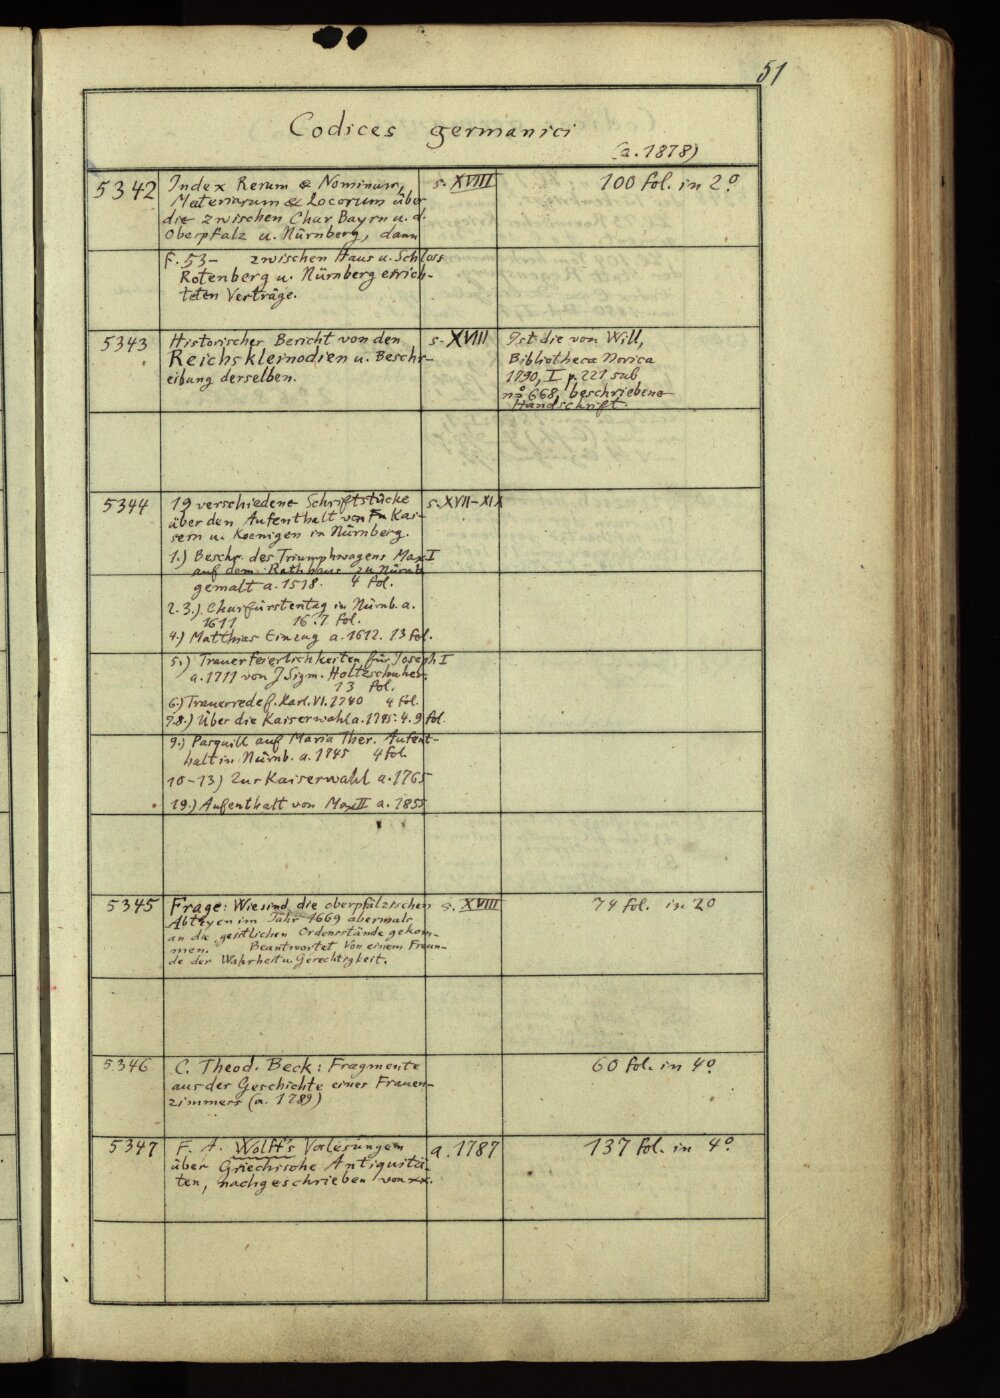 51
Codices germanici
(a. 1878)
5342 Index Rerum & Nominum, s. XVIII 100 fol. in 2º
Materiarum & Locorum über
die zwischen Chur Bayrn u. d.
Oberpfalz u. Nürnberg, dann
F. 53- zwischen Haus u. Schloss
Rotenberg u. Nürnberg errich-
teten Verträge.
5343 Historischer Bericht von den s. XVIII Ist die von Will,
Reichskleinodien u. Beschr- Bibliotheca Norica
eibung derselben. 1790, I p. 221 sub
nº 668, beschriebene
Handschrift.
5344 19 verschiedene Schriftstücke s. XVII-XIX
über den Aufenthalt von Kai-
sern u. Koenigen in Nürnberg.
1.) Beschr. des Triumphwagens Max I
auf dem Rathhaus zu Nürnb
gemalt a. 1518. 4 fol.
2. 3.) Churfürstentag in Nürnb. a.
1611 16. 7 fol.
4.) Matthias Einzug a. 1612. 13 fol.
5.) Trauerfeierlichkeiten für Joseph I
a. 1711 von J Sigm. Holtzschuher.
13 fol.
6.) Trauerrede f. Karl. VI. 1740 4 fol.
7.8.) Über die Kaiserwahl a. 1745. 4. 9 fol.
9.) Pasquill auf Maria Ther. Aufent-
halt in Nürnb. a. 1745 4 fol.
10-13) Zur Kaiserwahl a. 1765
19.) Aufenthalt von Max II a. 1855
5345 Frage: Wie sind die oberpfälzischen s. XVIII 74 fol. in 2º
Abteyen im Jahr 1669 abermals
an die geistlichen Ordensstände gekom-
men. Beantwortet Von einem Freun-
de der Wahrheit u. Gerechtigkeit.
5346 C. Theod. Beck: Fragmente 60 fol. in 4º
aus der Geschichte eines Frauen-
zimmers (a. 1789)
5347 F. A. Wolff's Vorlesungen a. 1787 137 fol. in 4º
über Griechische Antiquitä-
ten, nachgeschrieben von xx.